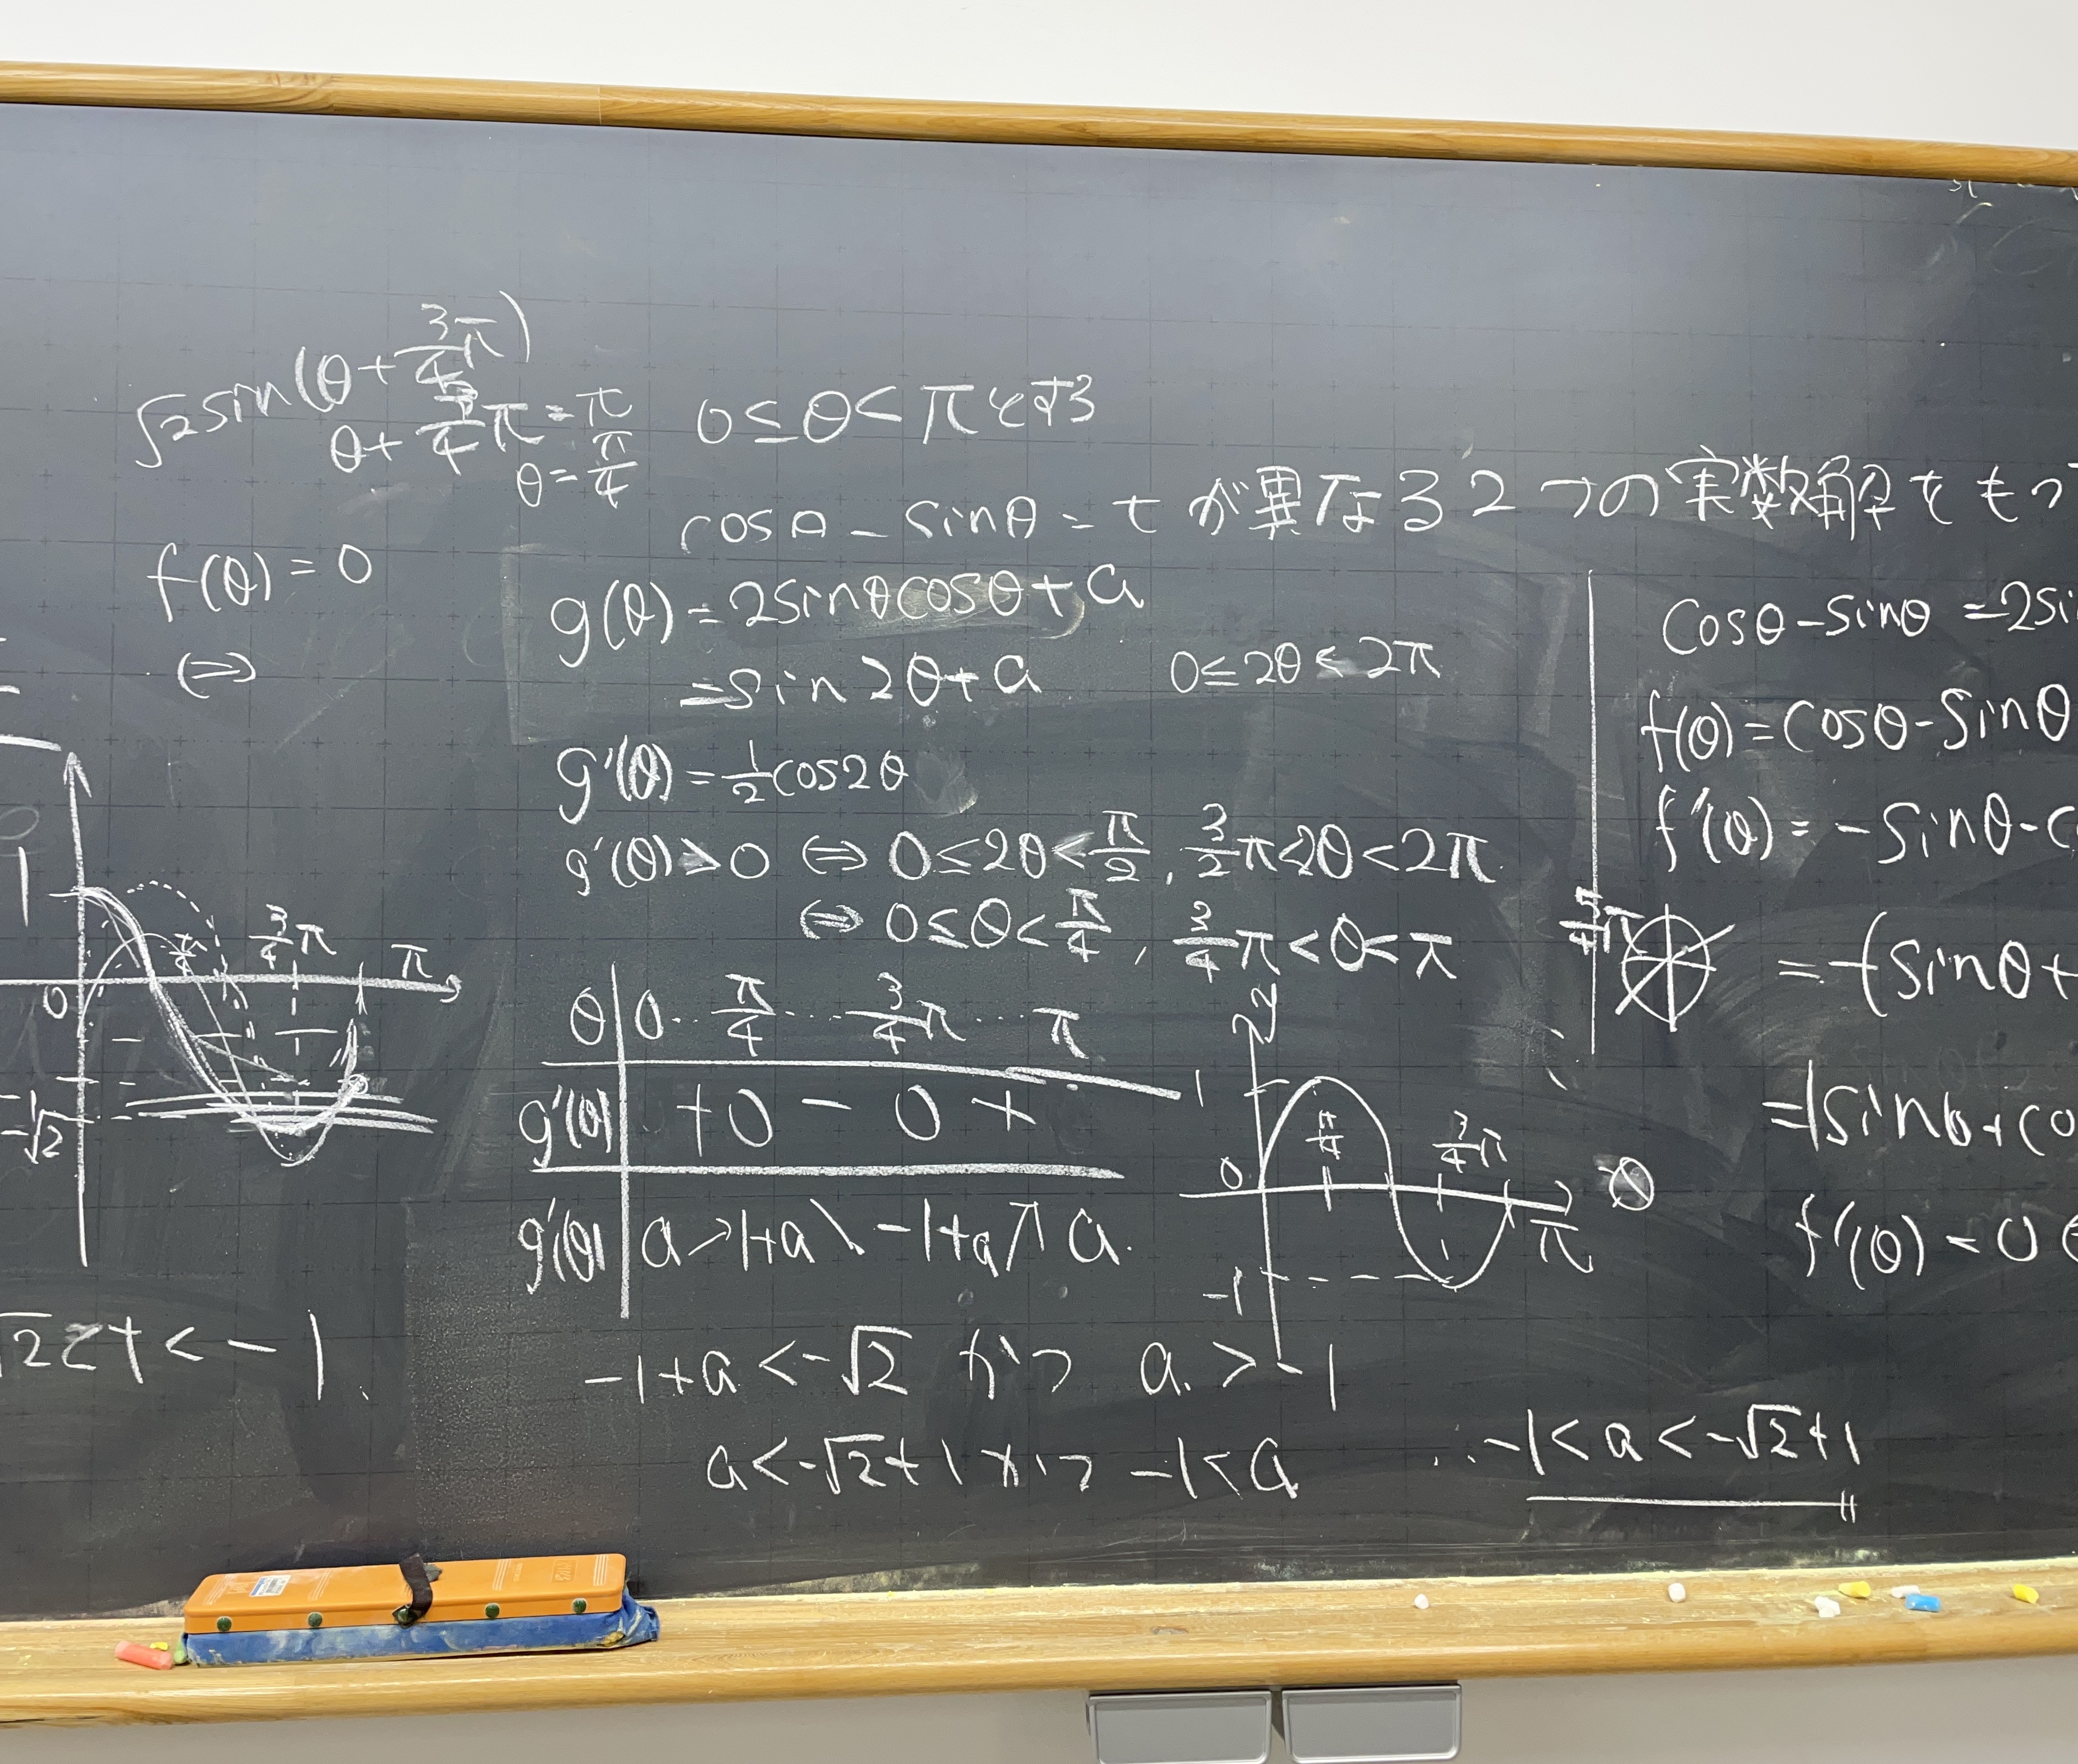 √2sin(θ+3/4π)
θ+3/4π=π
θ=π/4
f(θ)=0
⇔
1
0
π/4
3/4π
π
-1
-√2
√2<t<-1.
0≦θ<πとする
cosθ-sinθ=tが異なる2つの実数解をもつ
g(θ)=2sinθcosθ+a
=sin2θ+a 0≦2θ<2π
g'(θ)=1/2cos2θ
g'(θ)>0 ⇔ 0≦2θ<π/2, 3/2π<2θ<2π
⇔ 0≦θ<π/4, 3/4π<θ<π
θ 0 … π/4 … 3/4π … π
g'(θ) + 0 - 0 +
g'(θ) a ↗ 1+a ↘ -1+a ↗ a.
1
0
-1
π/4
3/4π
π
θ
-1+a<-√2 かつ a>-1
a<-√2+1 かつ -1<a
∴-1<a<-√2+1
cosθ-sinθ=2si
f(θ)=cosθ-sinθ
f'(θ)=-sinθ-c
5/4π
=-(sinθ+
=|sinθ+co
f'(θ)<0